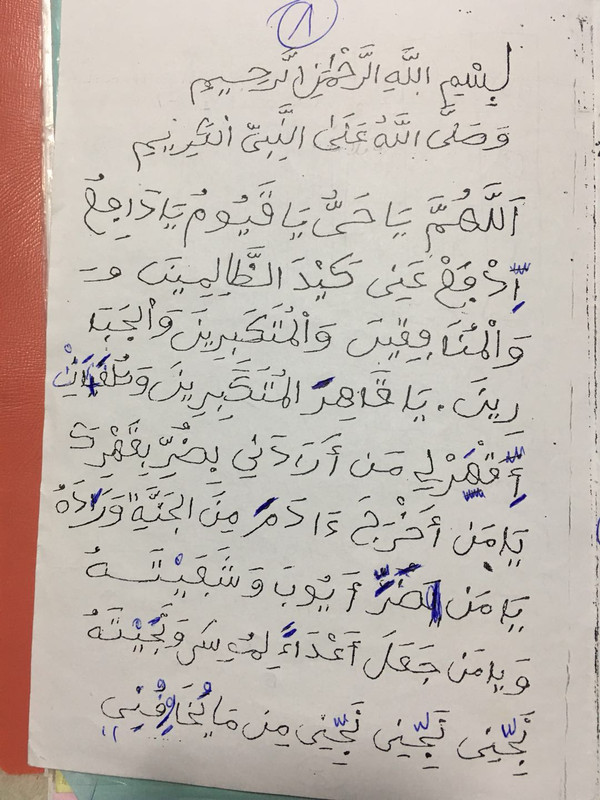 ١
بِسْمِ اللَّهِ الرَّحْمَٰنِ الرَّحِيمِ
وَصَلَّى اللَّهُ عَلَىٰ النَّبِيِّ الْكَرِيمِ
اَللَّهُمَّ يَا حَيُّ يَا قَيُّومُ يَا دَافِعُ
اِدْفَعْ عَنِّي كَيْدَ الظَّالِمِينَ وَ
وَالْمُنَافِقِينَ وَالْمُتَكَبِّرِينَ وَالْجَبَّا
رِينَ. يَا قَاهِرَ الْمُتَكَبِّرِينَ
اِقْهَرْ لِي مَن أَرَادَنِي بِضُرٍّ بِقَهْرِكَ
يَا مَن أَخْرَجَ ءَادَمَ مِنَ الْجَنَّةِ وَرَادَهُ
يَا مَن ضَرَّ أَيُّوبَ وَشَفَيْتَهُ
وَيَا مَن جَعَلَ أَعْدَاءً لِمُوسَىٰ وَنَجَّيْتَهُ
نَجِّينِي نَجِّينِي نَجِّينِي مِن مَا يُخَافُنِي